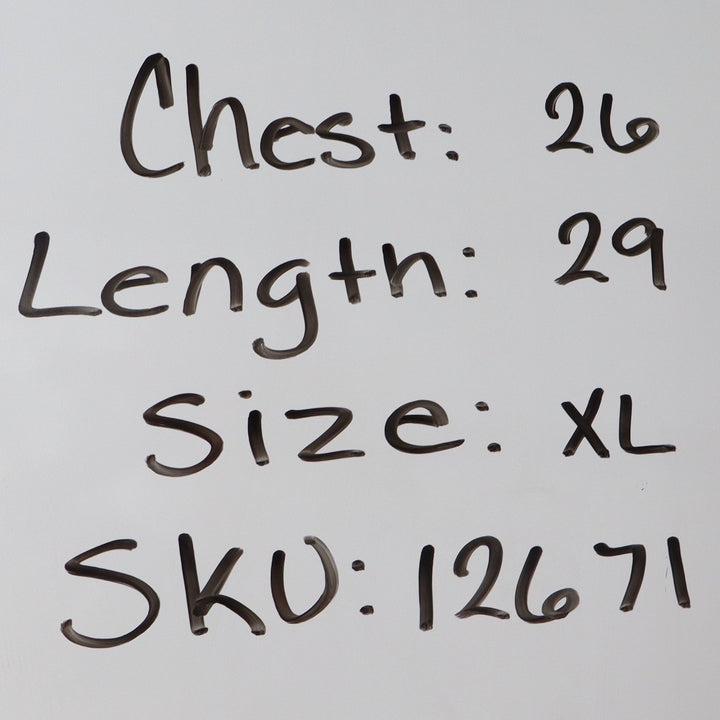 Chest: 26
Length: 29
Size: XL
SKU: 12671